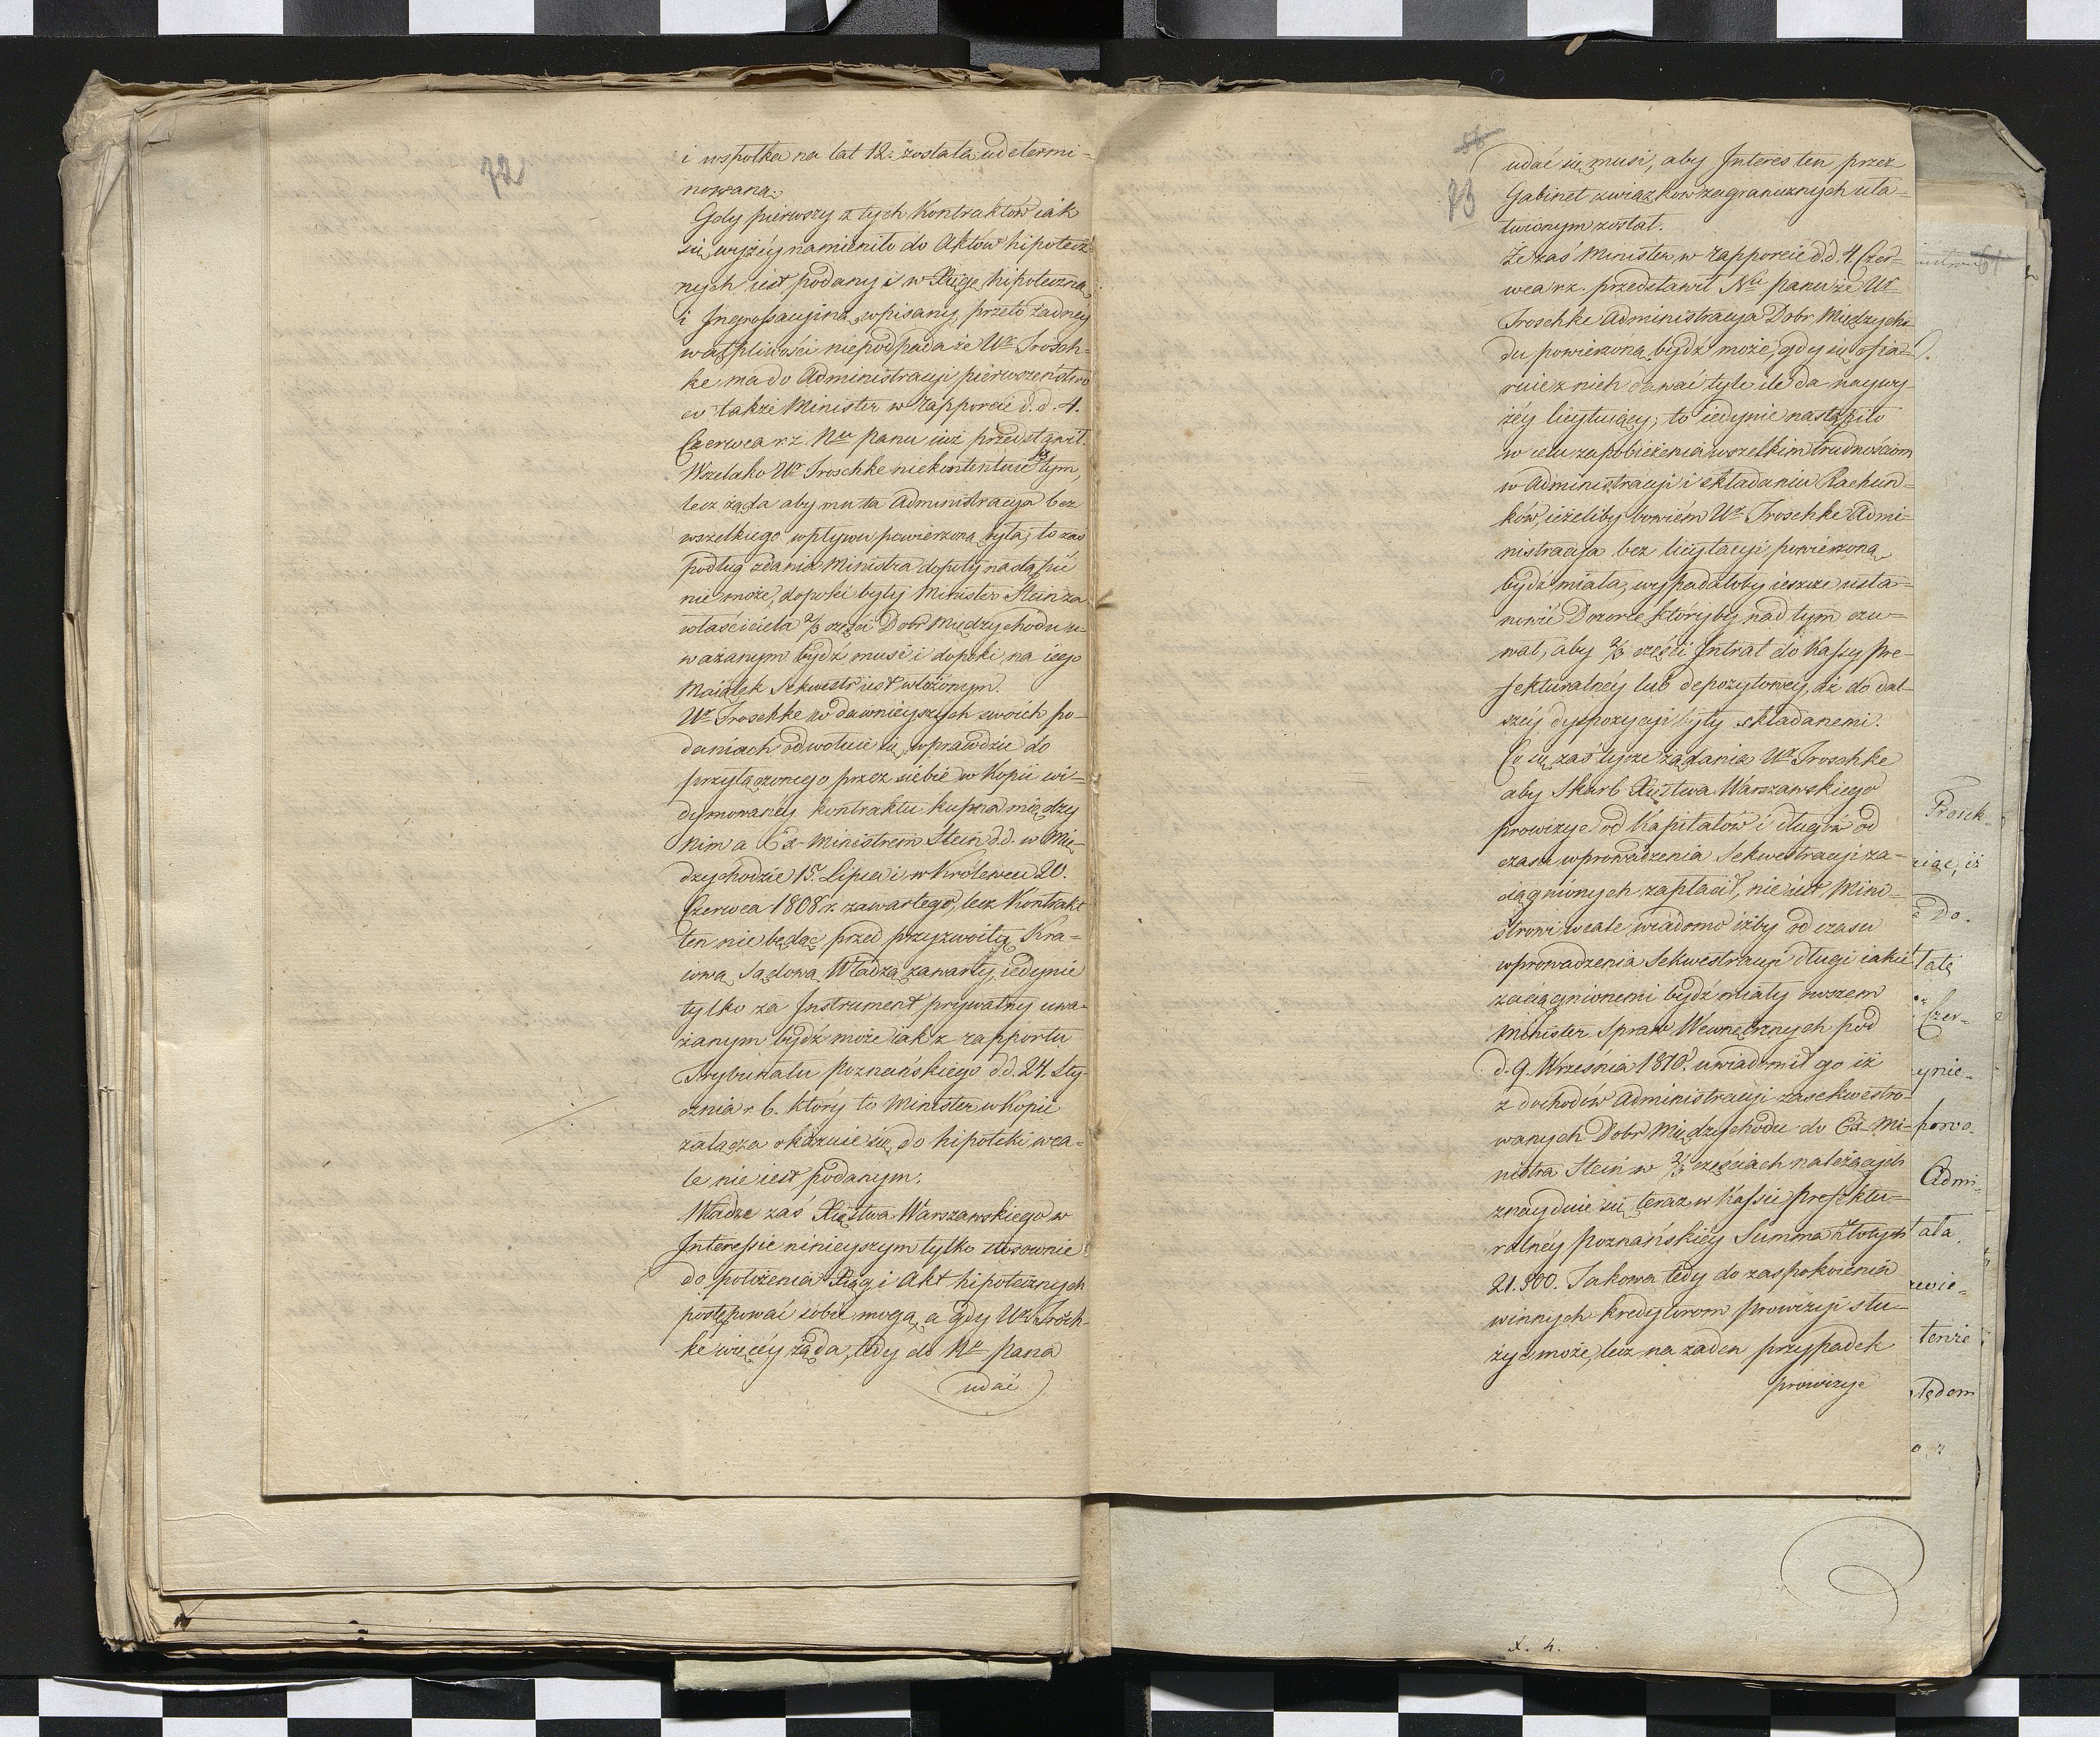 72
i wspólka na lat 12: została udetermi-
nowana.
Gdy pierwszy z tych Kontraktów iak
się wyżéy namieniło do Aktów hipotecz-
nych iest podany i w Xięgę hipoteczną
i Ingrossacyiną wpisany, przeto żadney
wątpliwości niepodpada że Ur Trosch-
ke ma do Administracyi pierwszeństwo
co także Minister w Rapporcie d. d. 4.
Czerwca r z Nu Panu iuż przedstawił.
Wszelako Ur Troschke niekontentuie się tym,
lecz żąda aby mu ta Administracya bez
wszelkiego wpływu powierzoną była, to zaś
podług zdania Ministra dopóty nastąpić
nie może, dopóki były Minister Stein za
właściciela 2/3 części Dobr Międzychodu u-
ważanym bydź musi i dopóki na iego
Maiątek Sekwestr iest włożonym.
Ur Troschke w dawnieyszych swoich po-
daniach odwołuie się wprawdzie do
przyłączonego przez siebie w Kopii wi-
dymowanéy kontraktu kupna między
nim a Ex-Ministrem Stein d.d. w Mię-
dzychodzie 15. Lipca i w Królewcu 20.
Czerwca 1808 r. zawartego, lecz Kontrakt
ten nie będąc przed przyzwoitą Kra-
iową Sądową Władzą zawarty, iedynie
tylko za Instrument prywatny uwa-
żanym bydź może iak z rapportu
Trybunału Poznańskiego d d. 24. Sty-
cznia r. b. który tu Minister w Kopii
załącza okazuie się, do hipoteki wca-
le nie iest podanym.
Władze zaś Xięstwa Warszawskiego w
Interessie ninieyszym tylko stosownie
do położenia Xiąg i Akt hipotecznych
postępować sobie mogą, a gdy Ur Trosch-
ke więcéy żąda, tedy do No Pana
udać
56
73
udać się musi, aby Interes ten przez
Gabinet związków zagranicznych uła-
twionym został.
Że zaś Minister w Rapporcie d. d. 4 Czer-
wca r z. przedstawił Nu Panu że Ur
Troschke Administracya Dobr Międzycho-
du powierzoną bydź może, gdy się ofia-
ruie z nich dawać tyle ile da naywy-
żéy licytuiący; to iedynie nastąpiło
w celu zapobieżenia wszelkim trudnościom
w Administracyi i składaniu Rachun-
ków, ieżeliby bowiem Ur Troschke Admi-
nistracya bez licytacyi powierzoną
bydź miała, wypadałoby ieszcze usta-
nowić Dozorcę któryby nad tym czu-
wał, aby 2/3 części Intrat do Kassy Pre-
fekturalnéy lub depozytowéy, aż do dal-
széy dyspozycyi były składanemi.
Co się zaś tycze żądania Ur Troschke
aby Skarb Xięztwa Warszawskiego
prowizye od Kapitałów i długów od
czasu wprowadzenia Sekwestracyi za-
ciągnionych zapłacił, nie iest Mini-
strowi wcale wiadomo iżby od czasu
wprowadzenia Sekwestracyi długi iakie
zaciągnionemi bydź miały owszem
Minister Spraw Wewnętrznych pod
d. 9. Września 1810. uwiadomił go iż
z dochodów Administracyi zasekwestro-
wanych Dobr Międzychodu do Ex-Mi-
nistra Stein w 2/3 częściach należących
znayduie się teraz w Kassie Prefektu-
ralnéy Poznańskiéy Summa Złotych
21.900. Takowa tedy do zaspokoienia
winnych kredytorom prowizyi słu-
żyć może, lecz na żaden przypadek
prowizye
61
Trosch-
iż
Do.
tatę
Czer-
ynie-
porwo-
Admi-
tała
tenże
X. 4.